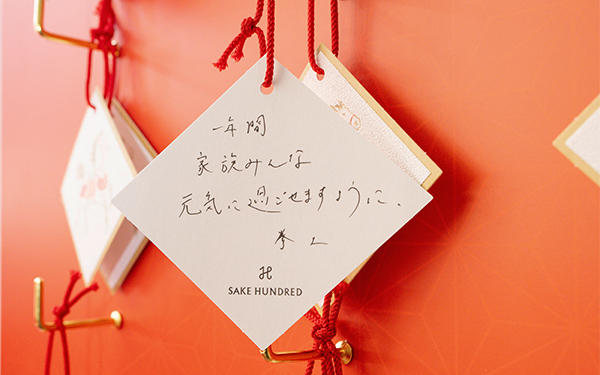 一年間
家族みんな
元気に過ごせますように。
SAKE HUNDRED